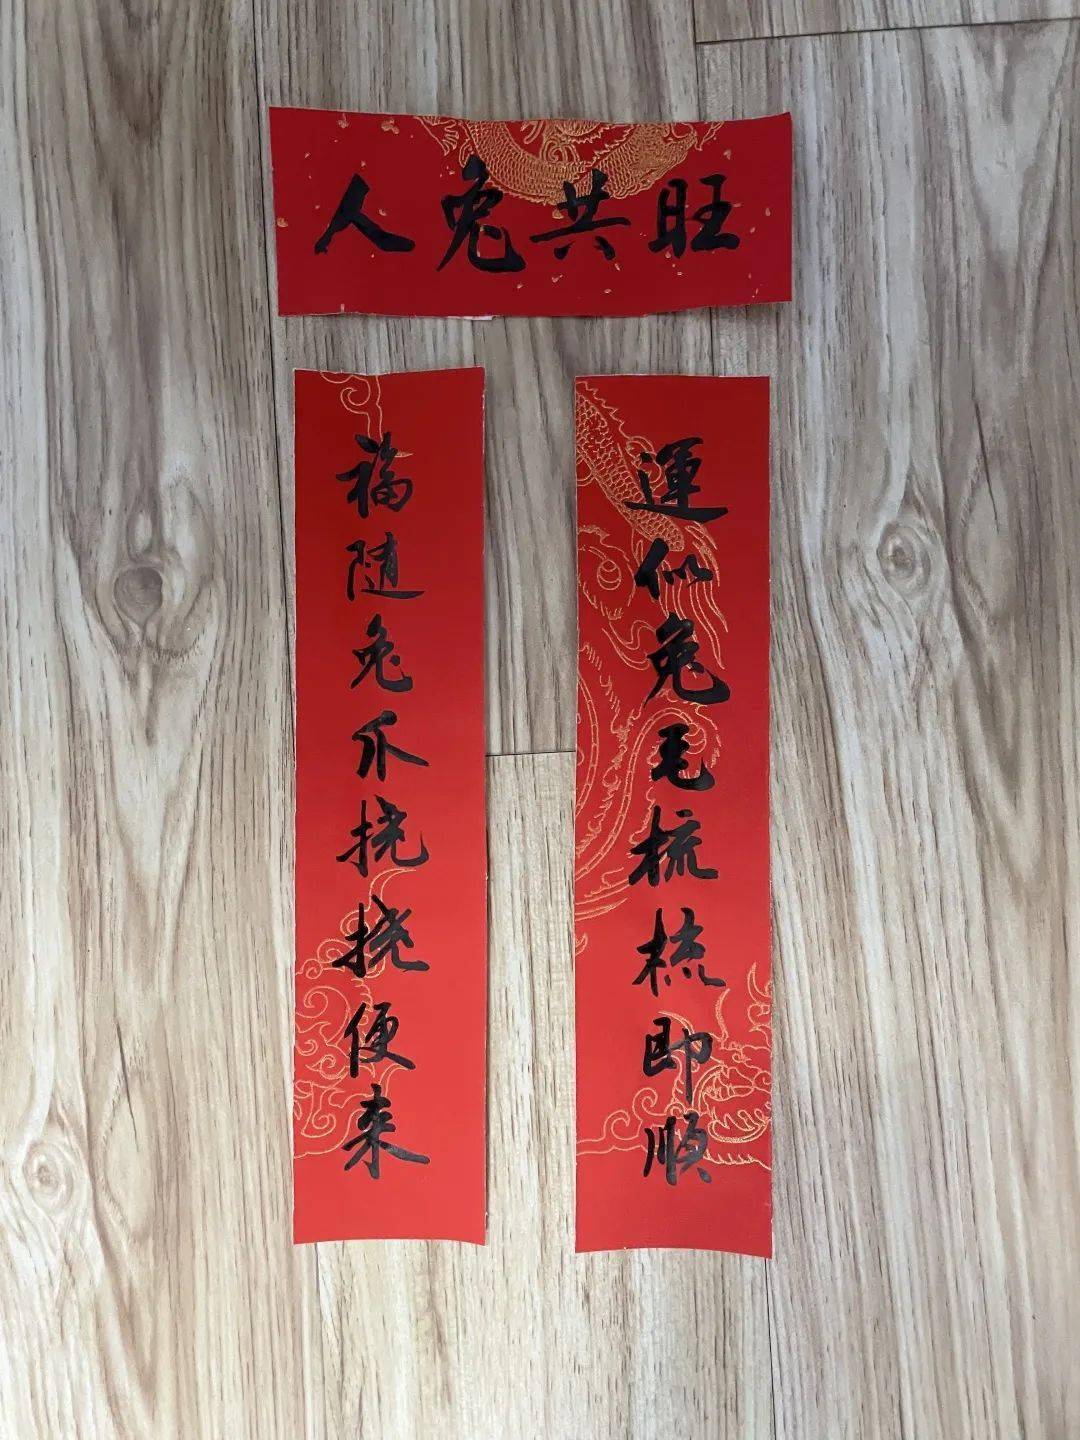 人兔共旺
運似兔毛梳梳即順
福随兔爪挠挠便来